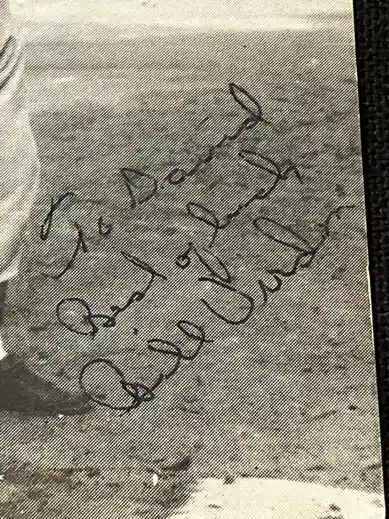 To David
Best of luck
Bill Virdon